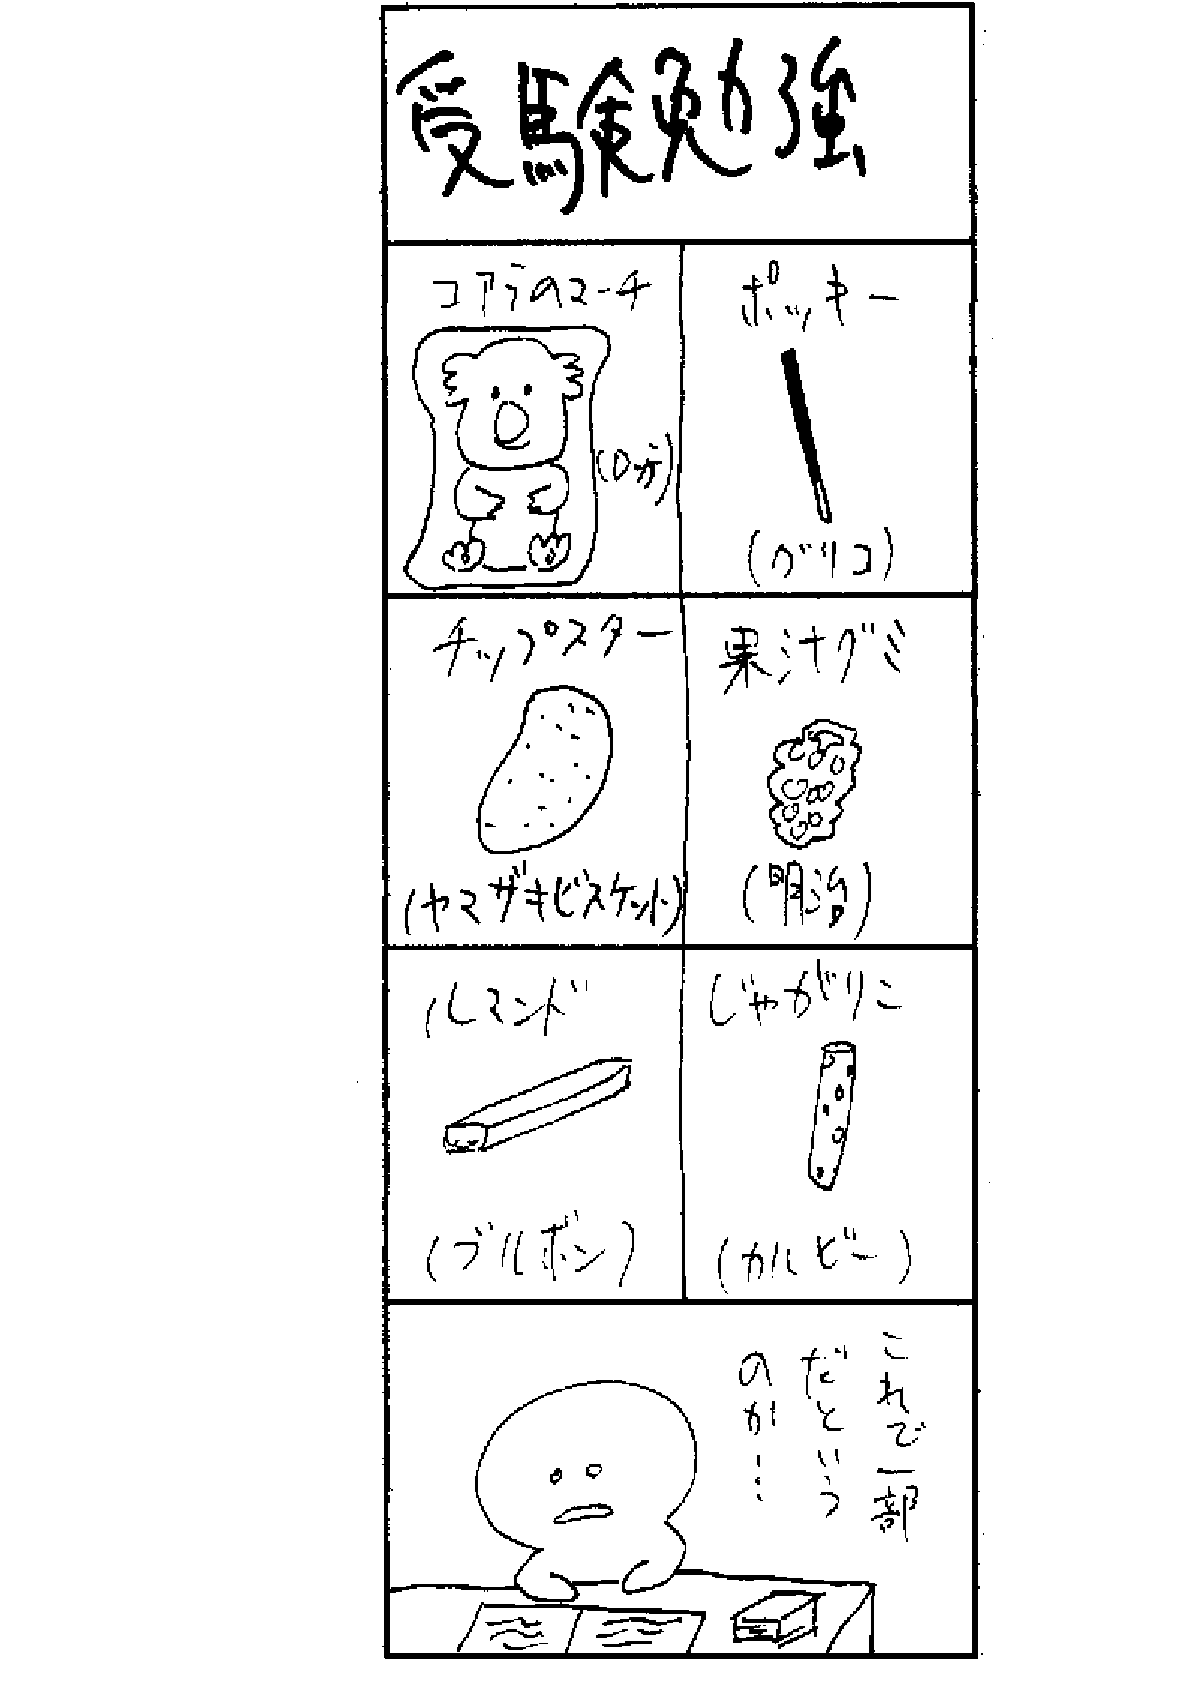 受験勉強
ポッキー
(グリコ)
コアラのマーチ
(ロッテ)
果汁グミ
(明治)
チップスター
(ヤマザキビスケット)
じゃがりこ
(カルビー)
ルマンド
(ブルボン)
これで一部
だという
のか…